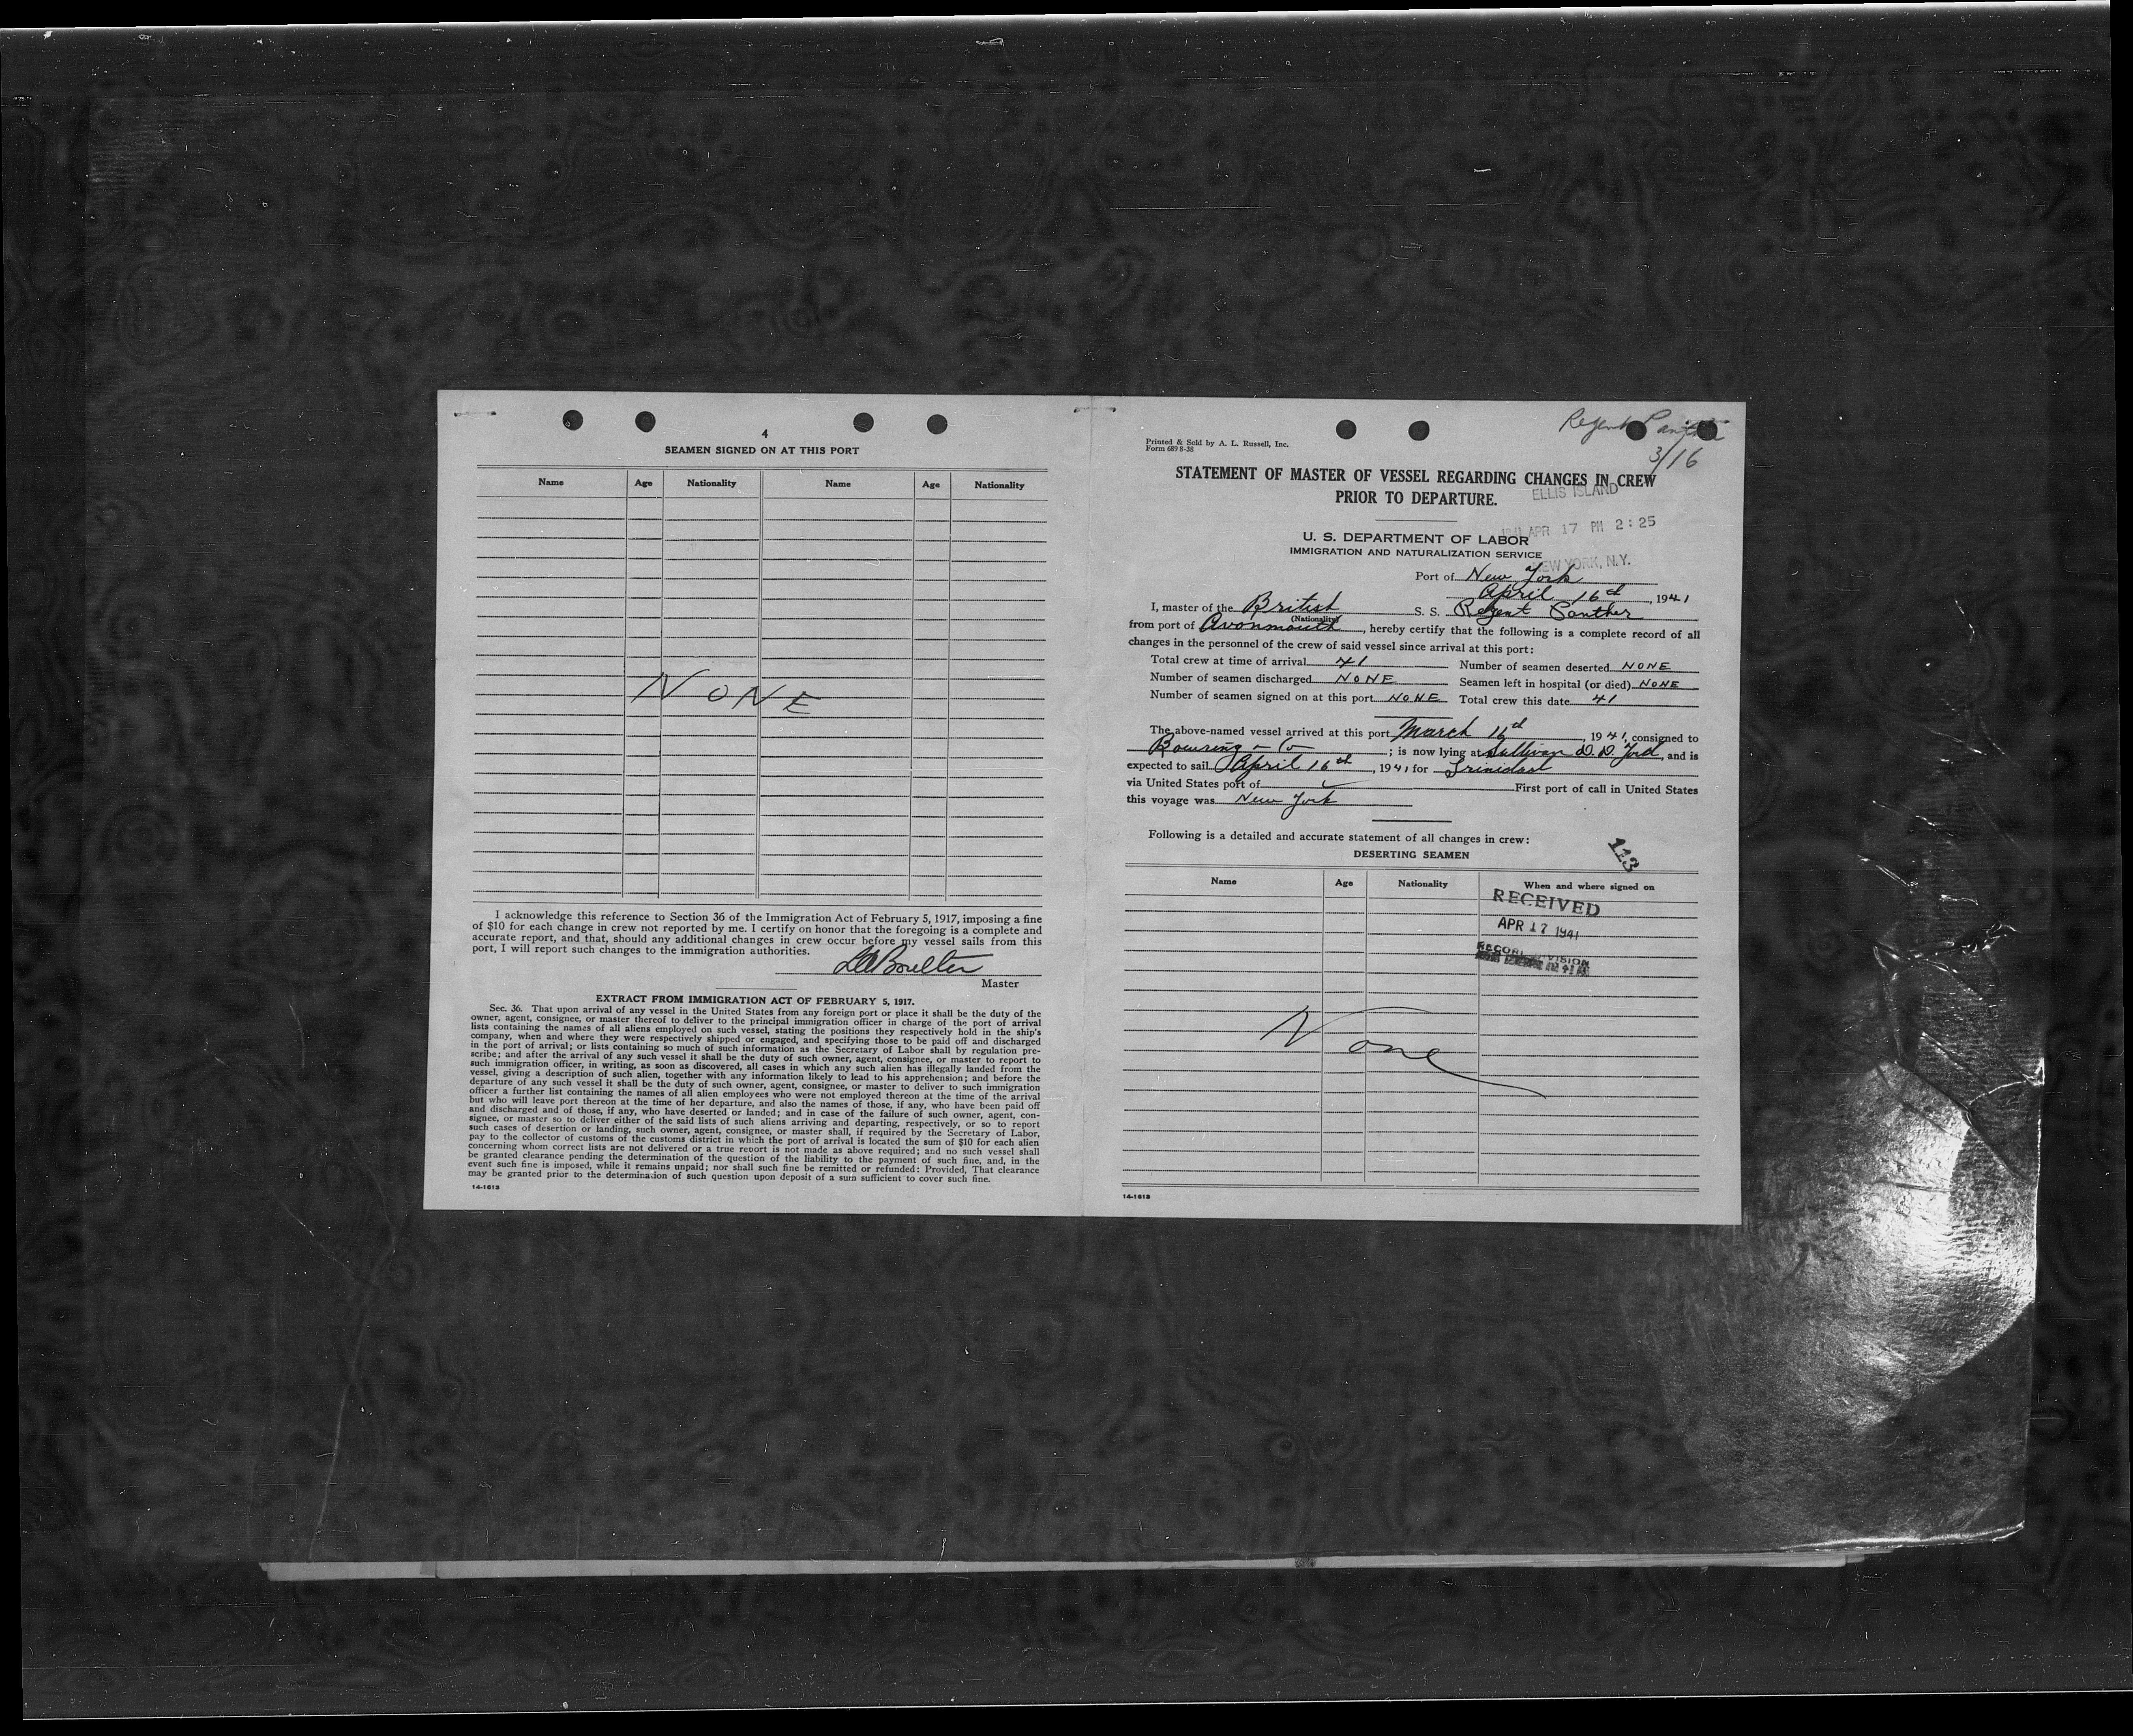 4
SEAMEN SIGNED ON AT THIS PORT
Name Age Nationality Name Age Nationality
NONE
I acknowledge this reference to Section 36 of the Immigration Act of February 5, 1917, imposing a fine
of $10 for each change in crew not reported by me. I certify on honor that the foregoing is a complete and
accurate report, and that, should any additional changes in crew occur before my vessel sails from this
port, I will report such changes to the immigration authorities.
Boulter
Master
EXTRACT FROM IMMIGRATION ACT OF FEBRUARY 5, 1917.
Sec. 36. That upon arrival of any vessel in the United States from any foreign port or place it shall be the duty of the
owner, agent, consignee, or master thereof to deliver to the principal immigration officer in charge of the port of arrival
lists containing the names of all aliens employed on such vessel, stating the positions they respectively hold in the ship's
company, when and where they were respectively shipped or engaged, and specifying those to be paid off and discharged
in the port of arrival; or lists containing so much of such information as the Secretary of Labor shall by regulation pre-
scribe; and after the arrival of any such vessel it shall be the duty of such owner, agent, consignee, or master to report to
such immigration officer, in writing, as soon as discovered, all cases in which any such alien has illegally landed from the
vessel, giving a description of such alien, together with any information likely to lead to his apprehension; and before the
departure of any such vessel it shall be the duty of such owner, agent, consignee, or master to deliver to such immigration
officer a further list containing the names of all alien employees who were not employed thereon at the time of the arrival
but who will leave port thereon at the time of her departure, and also the names of those, if any, who have been paid off
and discharged and of those, if any, who have deserted or landed; and in case of the failure of such owner, agent, con-
signee, or master so to deliver either of the said lists of such aliens arriving and departing, respectively, or so to report
such cases of desertion or landing, such owner, agent, consignee, or master shall, if required by the Secretary of Labor,
pay to the collector of customs of the customs district in which the port of arrival is located the sum of $10 for each alien
concerning whom correct lists are not delivered or a true report is not made as above required; and no such vessel shall
be granted clearance pending the determination of the question of the liability to the payment of such fine, and, in the
event such fine is imposed, while it remains unpaid; nor shall such fine be remitted or refunded: Provided, That clearance
may be granted prior to the determination of such question upon deposit of a sum sufficient to cover such fine.
14-1613
Regent Panther
3/16
Printed & Sold by A. L. Russell, Inc.
Form 689 8-38
STATEMENT OF MASTER OF VESSEL REGARDING CHANGES IN CREW
PRIOR TO DEPARTURE.
ELLIS ISLAND
1941 APR 17 PM 2:25
NEW YORK, N.Y.
U. S. DEPARTMENT OF LABOR
IMMIGRATION AND NATURALIZATION SERVICE
Port of New York
April 16th, 1941
I, master of the British S. S. Regent Panther
(Nationality)
from port of Avonmouth, hereby certify that the following is a complete record of all
changes in the personnel of the crew of said vessel since arrival at this port:
Total crew at time of arrival 41 Number of seamen deserted NONE
Number of seamen discharged NONE Seamen left in hospital (or died) NONE
Number of seamen signed on at this port NONE Total crew this date 41
The above-named vessel arrived at this port March 16th, 1941, consigned to
Bowring & Co; is now lying at Sullivan D. D. Yard, and is
expected to sail April 16th, 1941 for Trinidad
via United States port of First port of call in United States
this voyage was New York
Following is a detailed and accurate statement of all changes in crew:
113
DESERTING SEAMEN
Name Age Nationality When and where signed on
RECEIVED
APR 17 1941
None
14-1613